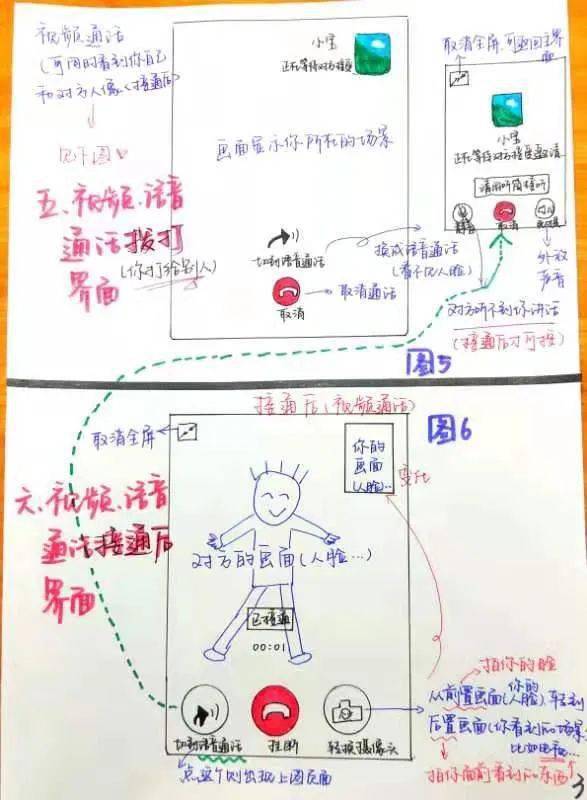 视频通话
(可同时看到你自己
和对方人像(接通后)
见下图
五、视频、语音
通话拨打
(你打给别人)
界面
小宝
正在等待对方接受
画面显示你所在的场景
切到语音通话
换成语音通话
(看不见人脸)
取消通话
取消
取消全屏,可返回主界
面
小宝
正在等待对方接受邀请
请用听筒接听
取消
外放
声音
对方听不到你讲话
(接通后才可按)
图5
接通后(视频通话)
图6
取消全屏
你的
画面
(人脸)...
变化
六、视频、语音
通话接通后
界面
对方的画面(人脸...)
已接通
00:01
切到语音通话
挂断
转换摄像头
点这个则出现上图页面
拍你的脸
你的
从前置画面(人脸)转到
后置画面(你看到的场景,
比如电视...)
拍你面前看到的东西
3